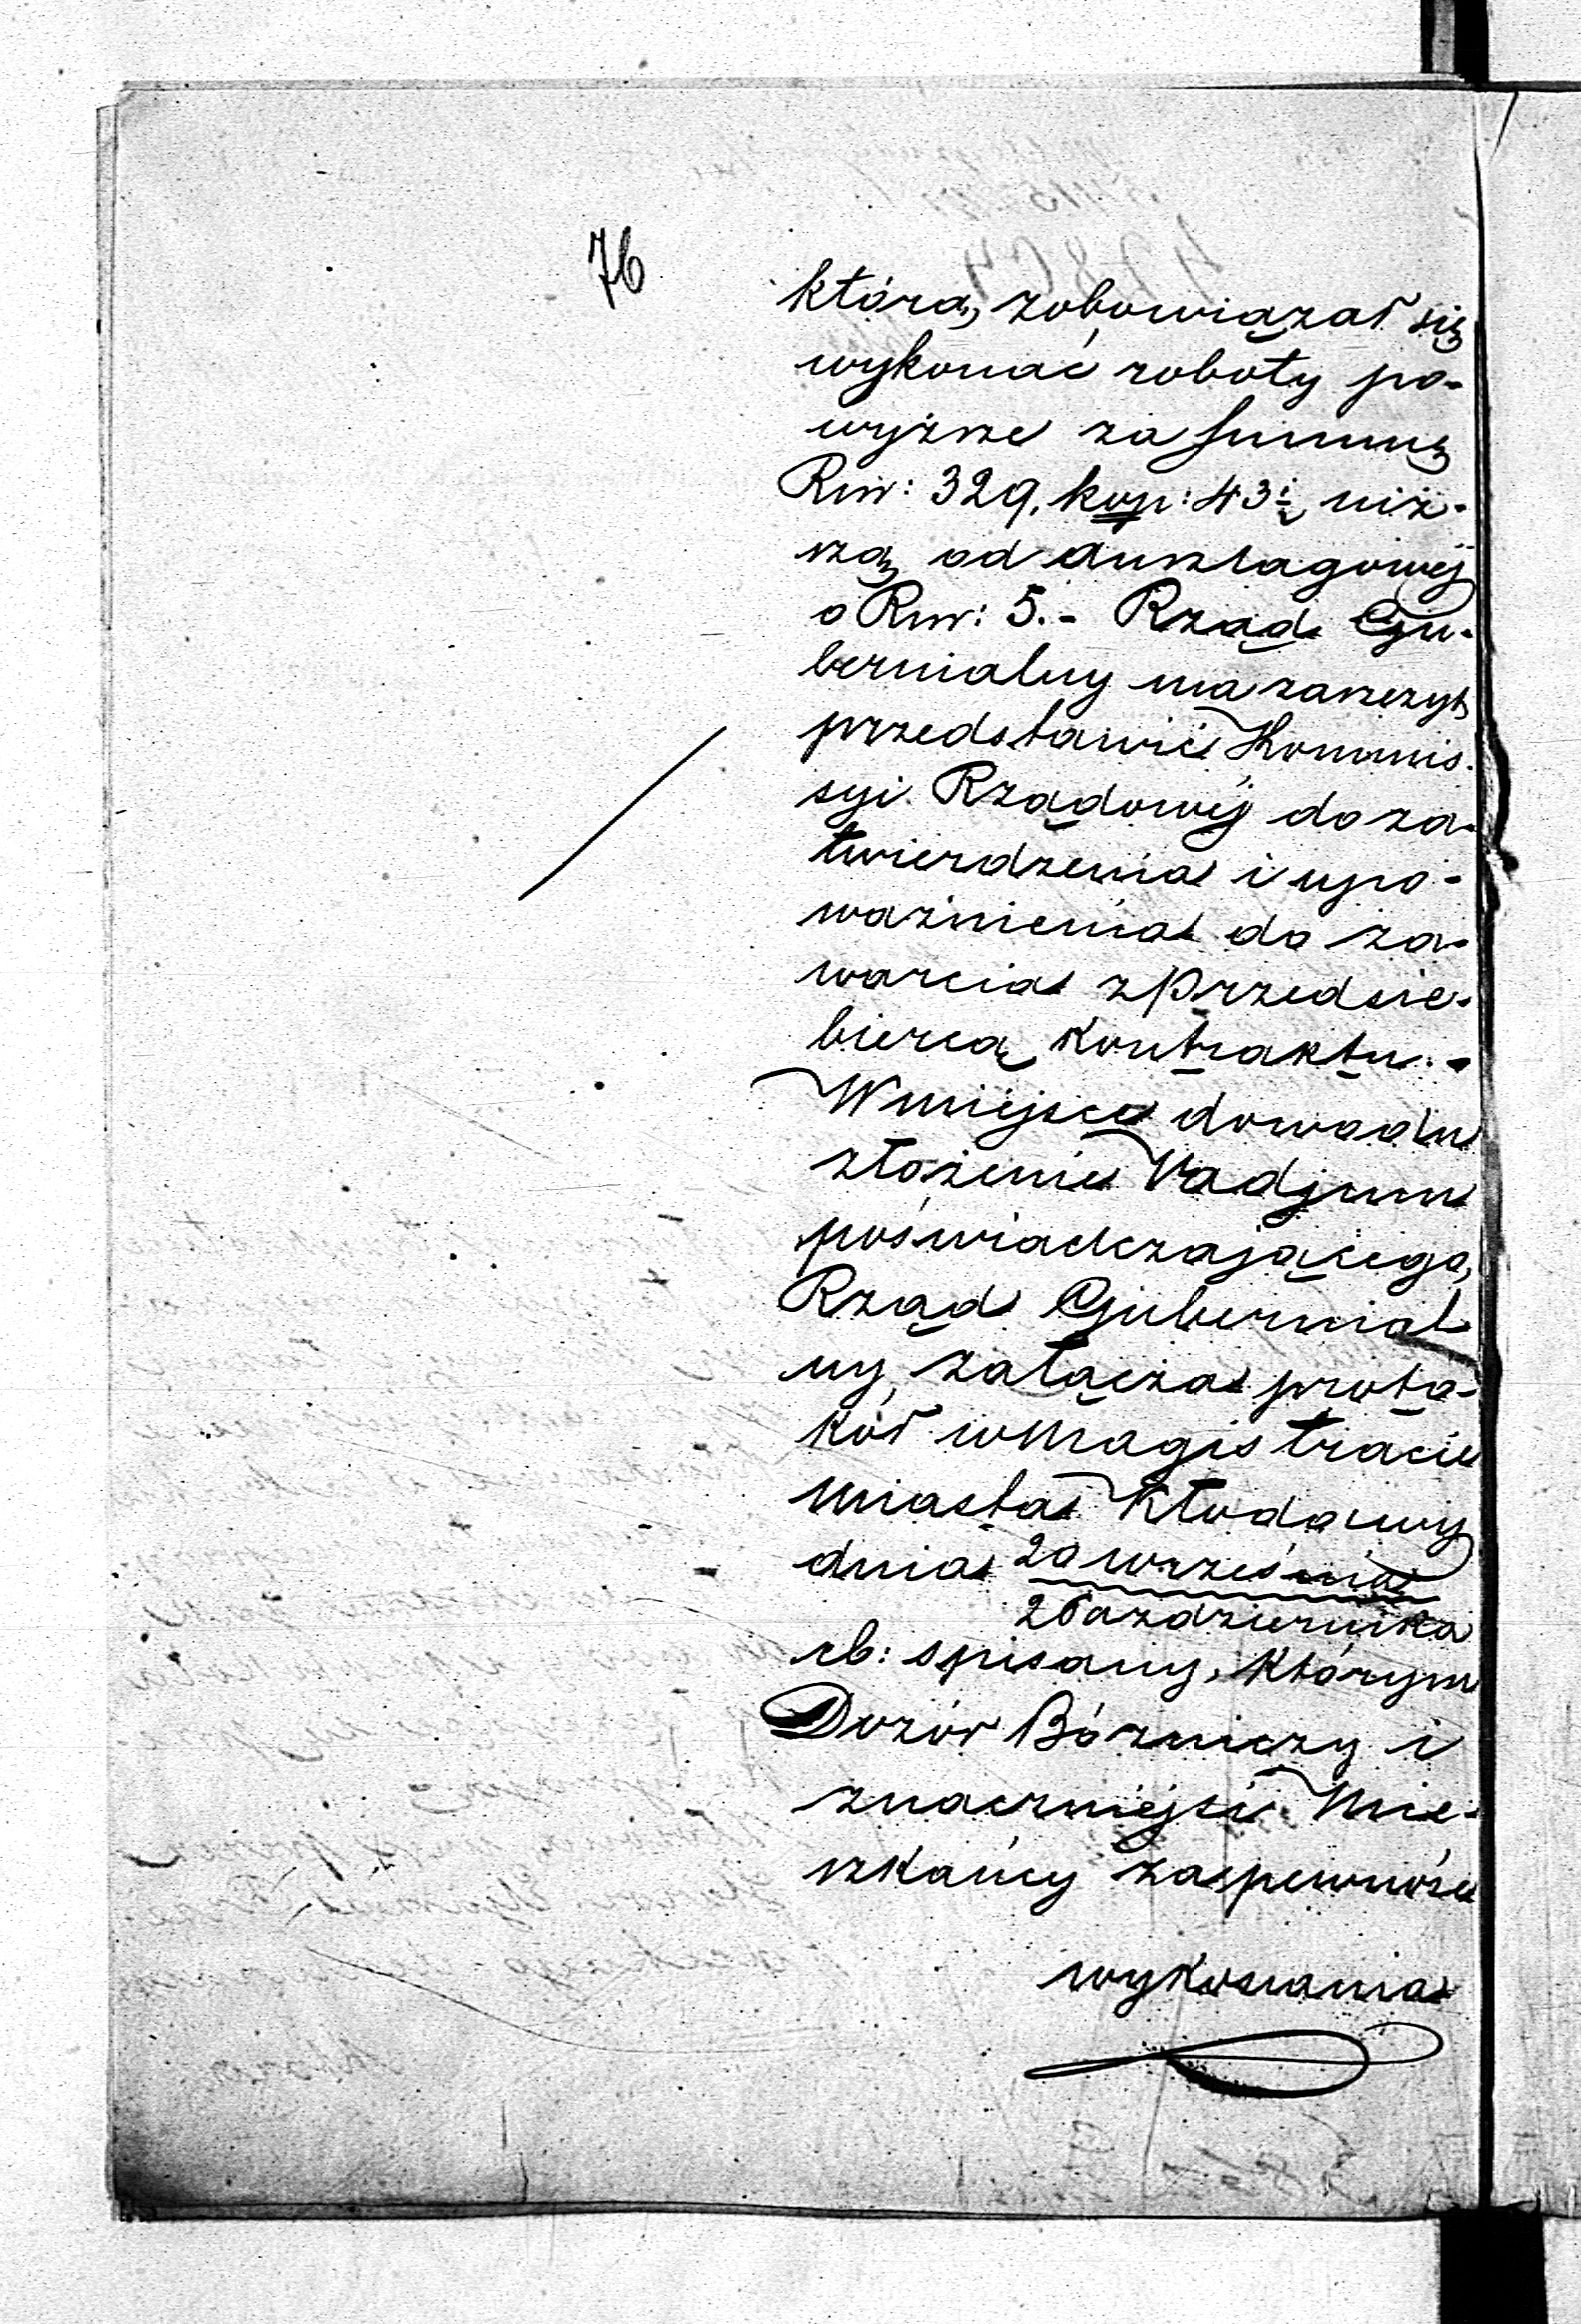 76
którą, zobowiązał się
wykonać roboty po-
wyższe za summę
Rsr: 329, kop: 43½ niż-
szą od anszlagowéj
o Rsr: 5.- Rząd Gu-
bernialny ma zaszczyt
przedstawić Kommis-
syi Rządowéj do za-
twierdzenia i upo-
ważnienia do za-
warcia z przedsie-
biercą kontraktu.-
W miejsce dowodu
złożenie Vadjum
poświadczającego,
Rząd Gubernial-
ny, załącza proto-
kół w Magistracie
Miasta Kłodawy
dnia 20 września
2 Października
rb: spisany, którym
Dozór Bóżniczy i
znaczniejsi Mie-
szkańcy za pewność
wykonania